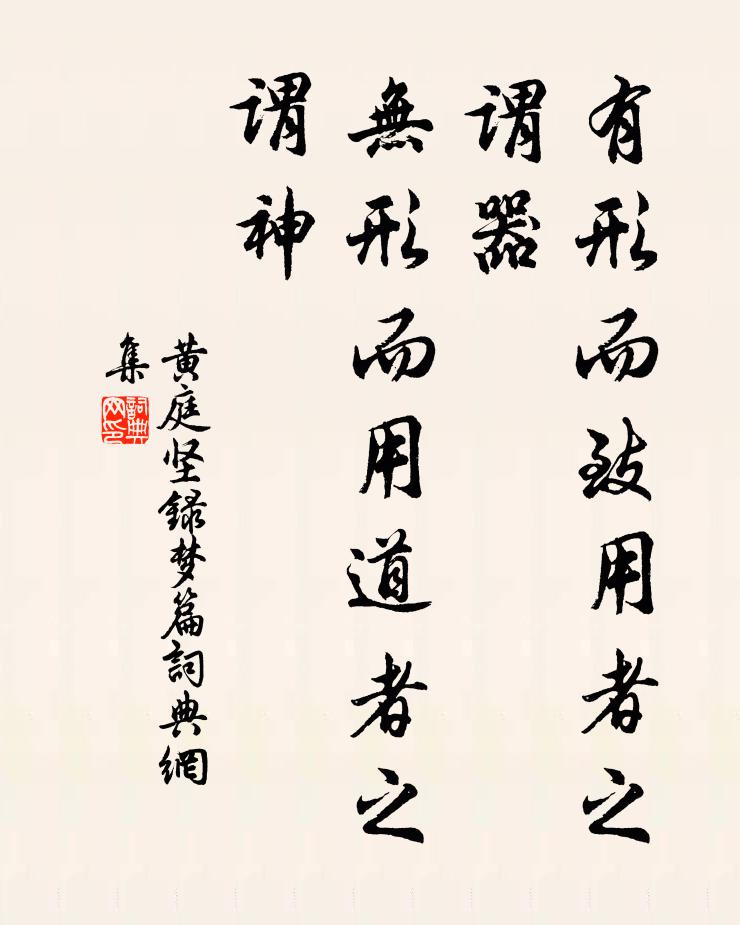 有形而致用者之
谓器
無形而用道者之
谓神
黄庭坚録梦篇詞典網
集
詞典
网印